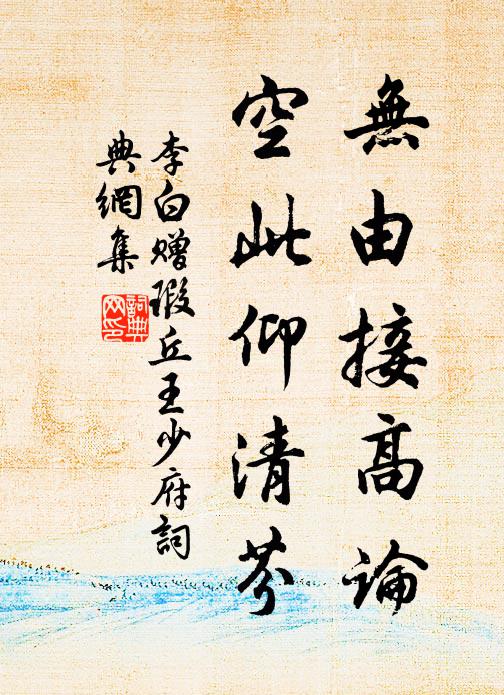 無由接高論
空此仰清芬
李白贈瑕丘王少府詞
典網集
詞典
网印